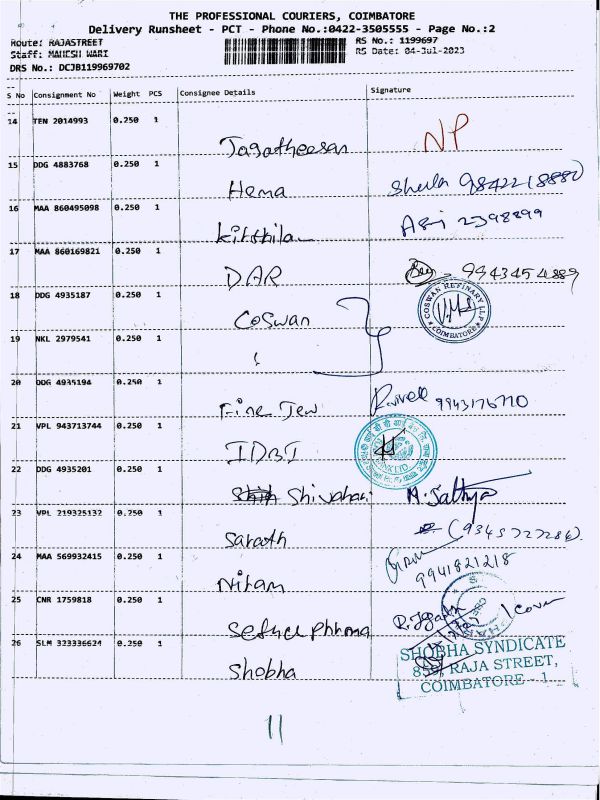 THE PROFESSIONAL COURIERS, COIMBATORE
Delivery Runsheet - PCT - Phone No.:0422-3505555 - Page No.:2
Route: RAJASTREET RS No.: 1199697
Staff: MAHESH WARI RS Date: 04-Jul-2023
DRS No.: DCJB119969702
S No Consignment No Weight PCS Consignee Details Signature
14 TEN 2014993 0.250 1
Jagatheesan NP
15 DDG 4883768 0.250 1
Hema
16 MAA 860495098 0.250 1
2398899
17 MAA 860169821 0.250 1
DAR 9943454889
18 DDG 4935187 0.250 1
Coswan
COSWAN REFINARY LLP
COIMBATORE
19 NKL 2979541 0.250 1
20 DDG 4935194 0.250 1
Fine Jew 9943176770
21 VPL 943713744 0.250 1
IDBI
22 DDG 4935201 0.250 1
Shivahari M. Sathya
23 VPL 219325132 0.250 1
Sarath
24 MAA 569932415 0.250 1
9941821218
25 CNR 1759818 0.250 1
1 cover
26 SLM 323336624 0.250 1
Shobha
SHOBHA SYNDICATE
859, RAJA STREET,
COIMBATORE - 1
11